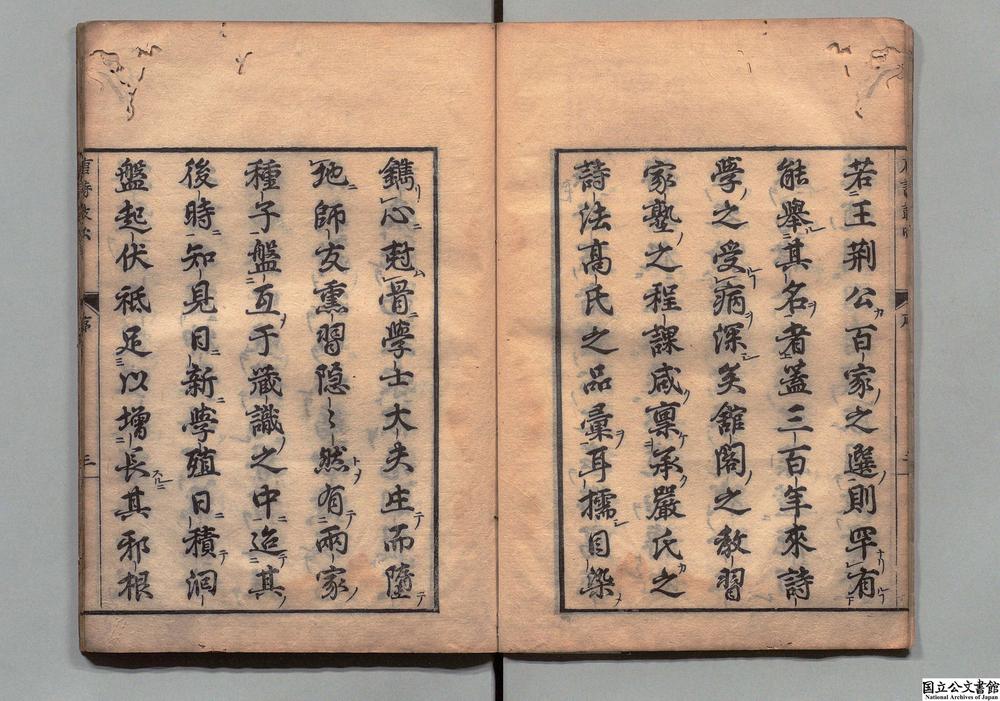 若王荆公百家之選則罕有
能舉其名者蓋三百年來詩
學之受病深矣舘閣之教習
家塾之程課咸禀承嚴氏之
詩法髙氏之品彙耳擩目染
鐫心尅骨學士大夫生而墮
地師友熏習隐〻然有兩家
種子盤互于藏識之中迨其
後時知見日新學殖日積洄
盤起伏祇足以增長其邪根
序
三
国立公文書館
National Archives of Japan